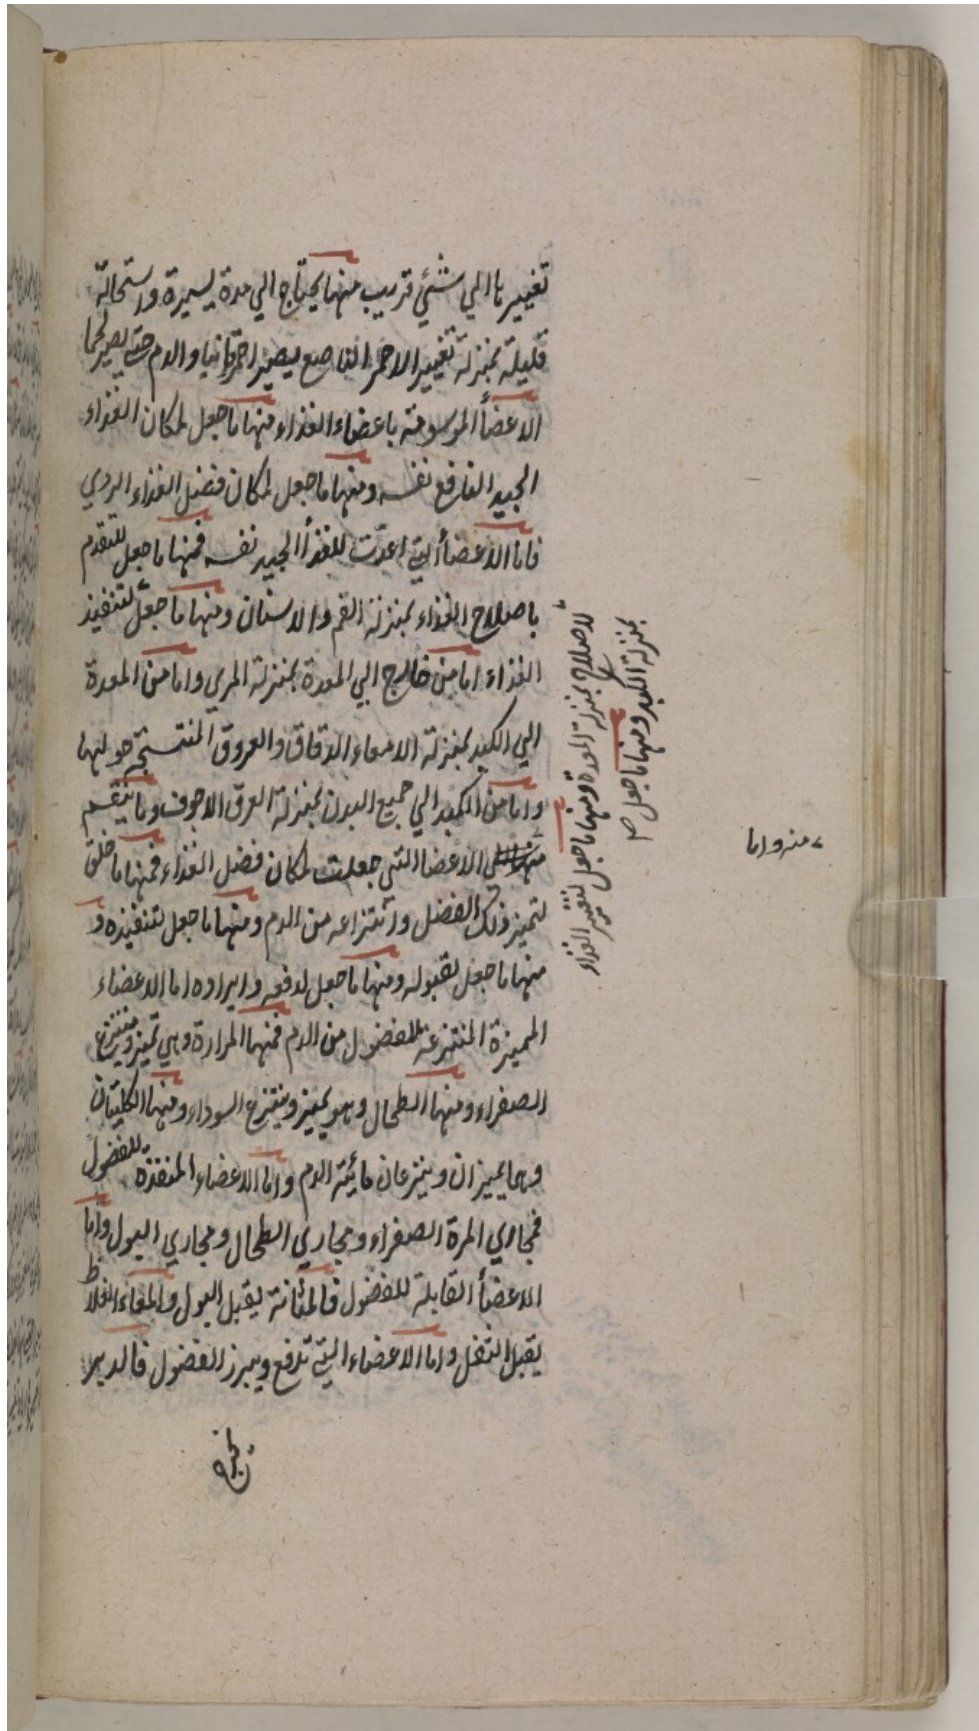 تغييرها الي شئي قريب منها يحتاج الي مدة يسيرة واستحالة
قليلة بمنزلة تغيير الاحمر الناصع ليصير احمر قانيا والدم حتى يصير لحما
الاعضأ الموسومة باعضاء الغذاء منها ما جعل لمكان الغذاء
الجيد النافع نفسه ومنها ما جعل لمكان فضل الغذاء الردي
فاما الاعضأ التي اعدّت للغذأ الجيد نفسه فمنها ما جعل للتقدم
باصلاح الغذاء بمنزلة الفم والاسنان ومنها ما جعل لتنفيذ
الغذاء اما من خارج الي المعدة بمنزلة المري واما من المعدة
الي الكبد بمنزلة الامعاء الدقاق والعروق المنتسجة حوليها
واما من الكبد الي جميع البدن بمنزلة العرق الاجوف وما ينقسم
الاعضا التي جعلت لمكان فضل الغذاء فمنها ما خلق
لتميز ذلك الفضل وانتزاعه من الدم ومنها ما جعل لتنفيذه و
منها ما جعل لقبوله ومنها ما جعل لدفعه وابراده اما الاعضاء
المميزة المنتزعة للفضول من الدم فمنها المرارة وهي تميز وتنتزع
الصفراء ومنها الطحال وهو يميز وينتزع السوداء ومنها الكليتان
وهما يميزان وينزعان مائية الدم واما الاعضاء المنفذة للفضول
فمجاري المرة الصفراء ومجاري الطحال ومجاري البول واما
الاعضأ القابلة للفضول فالمثانة يقبل البول والمعاء الغلاظ
يقبل الثفل واما الاعضاء التي تدفع ويبرز الفضول فالدبر
للاصلاح بمنزلة المعدة ومنها ما جعل لتغيير الغذاء
بمنزلة الكبد ومنها ما جعل
منه واما